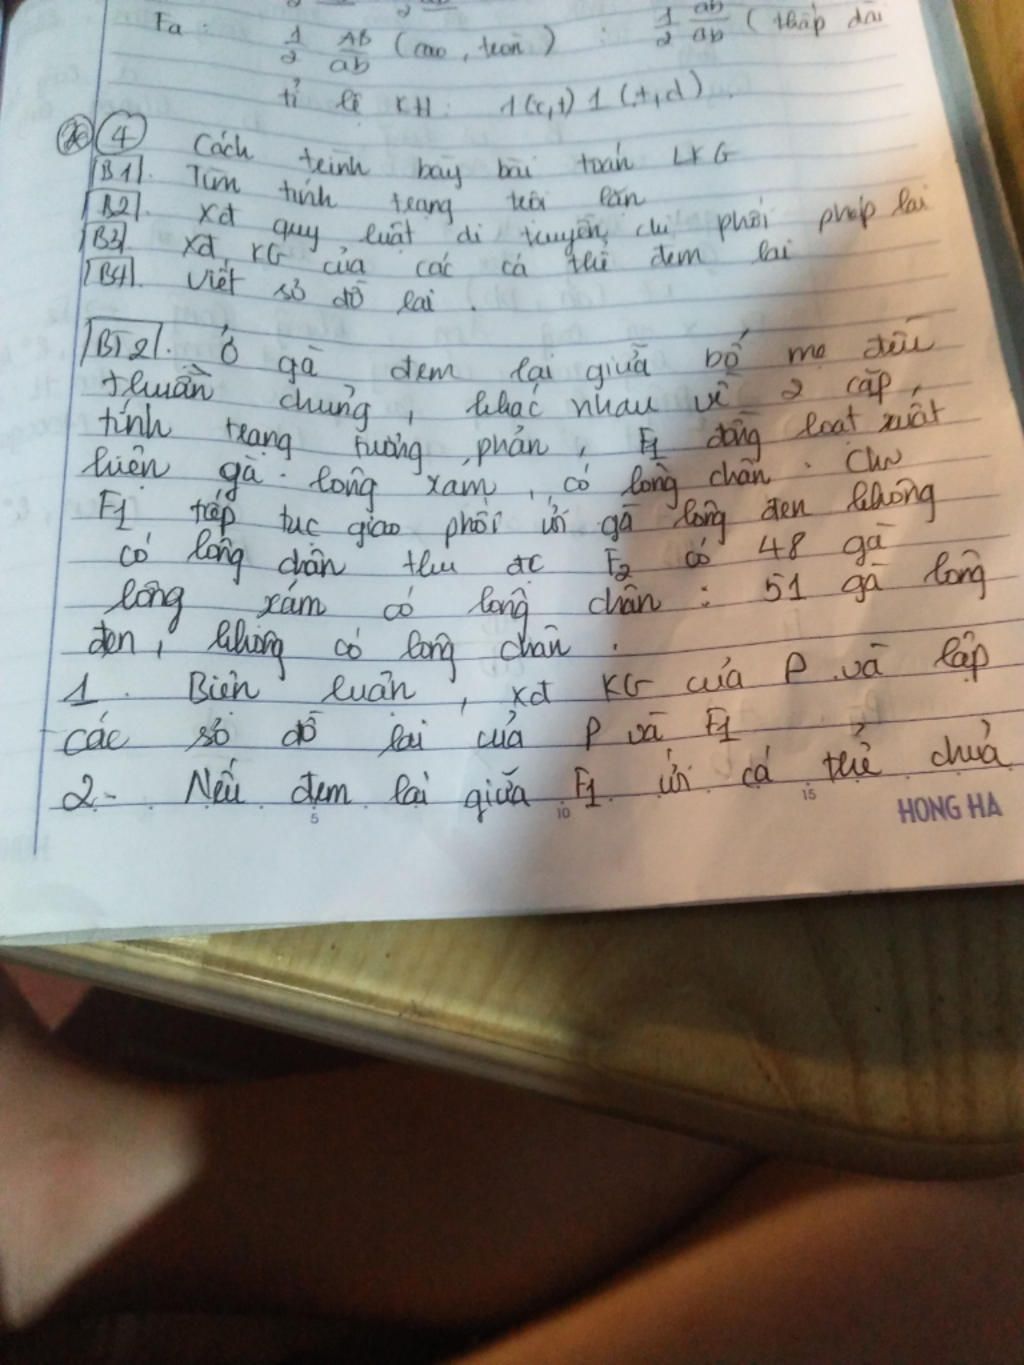 Fa: 1/2 AB/ab (cao, tròn) : 1/2 ab/ab (thấp dài
tỉ lệ KH: 1(c,t) 1(t,d).
④ Cách trình bày bài toán LKG
[B1]. Tìm tính trạng trội lặn
[B2]. Xđ quy luật di truyền chi phối phép lai
[B3]. Xđ KG của các cá thể đem lai
[B4]. Viết sơ đồ lai.
[BT2]. Ở gà đem lại giữa bố mẹ đều
thuần chủng, khác nhau về 2 cặp,
tính trạng tương phản, F1 đồng loạt xuất
hiện gà lông xám, có lông chân. Cho
F1 tiếp tục giao phối với gà lông đen không
có lông chân thu đc F2 có 48 gà
lông xám có lông chân : 51 gà lông
đen, không có lông chân.
1. Biện luận, xđ KG của P và lập
các sơ đồ lai của P và F1
2- Nếu đem lai giữa F1 với cá thể chưa
5 10 15
HONG HA